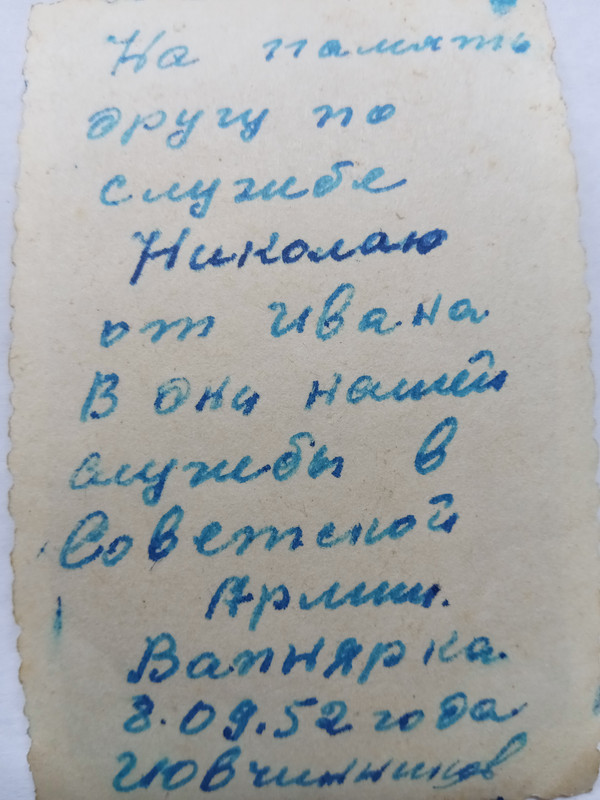 На память
другу по
службе
Николаю
от ивана
В дни нашей
службы в
Советской
Армии.
Вапнярка.
8.09.52 года